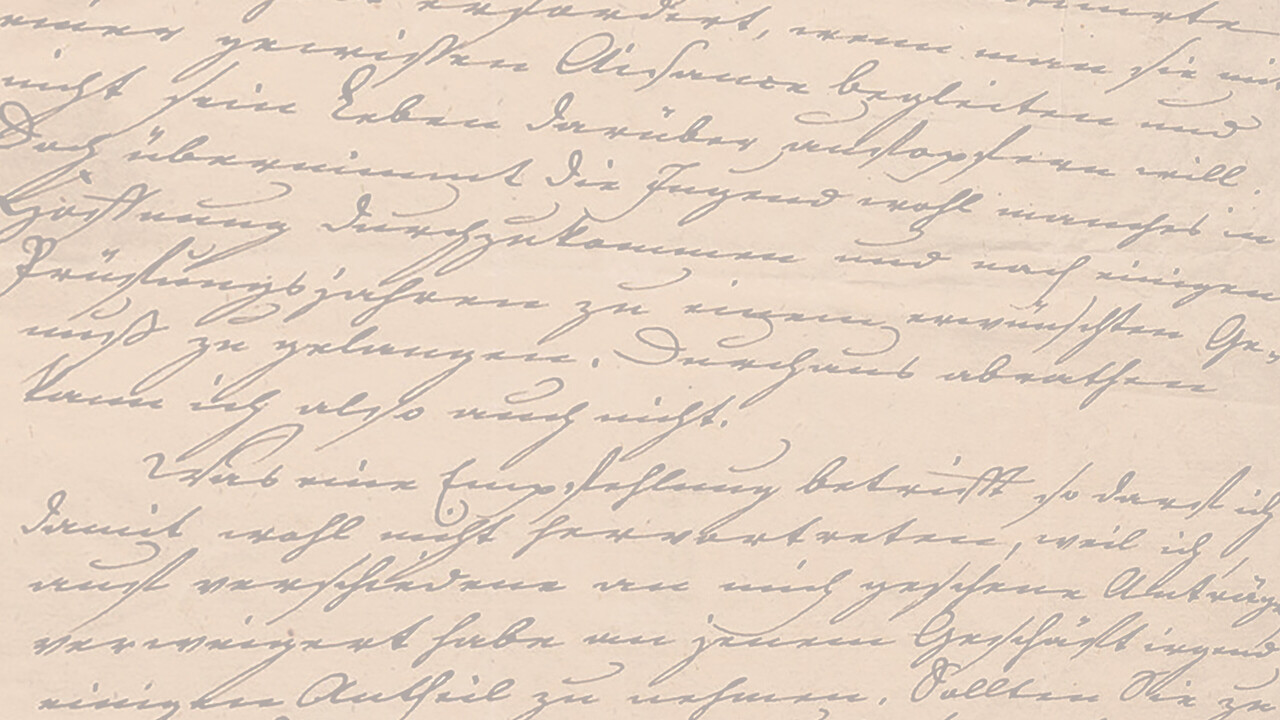 erfordert, wenn man sie mit
einer gewissen Aisance begleiten und
nicht sein Leben darüber aufopfern will.
Doch übernimmt die Jugend wohl manches in
Hoffnung durchzukommen und nach einigen
Prüfungsjahren zu einem erwünschten Ge-
nuß zu gelangen. Durchaus abrathen
kann ich also auch nicht.
Was eine Empfehlung betrifft so darf ich
damit wohl nicht hervortreten, weil ich,
auf verschiedene an mich geschehene Anträge
verweigert habe an jenem Geschäft irgend
einigen Antheil zu nehmen. Sollten Sie zu